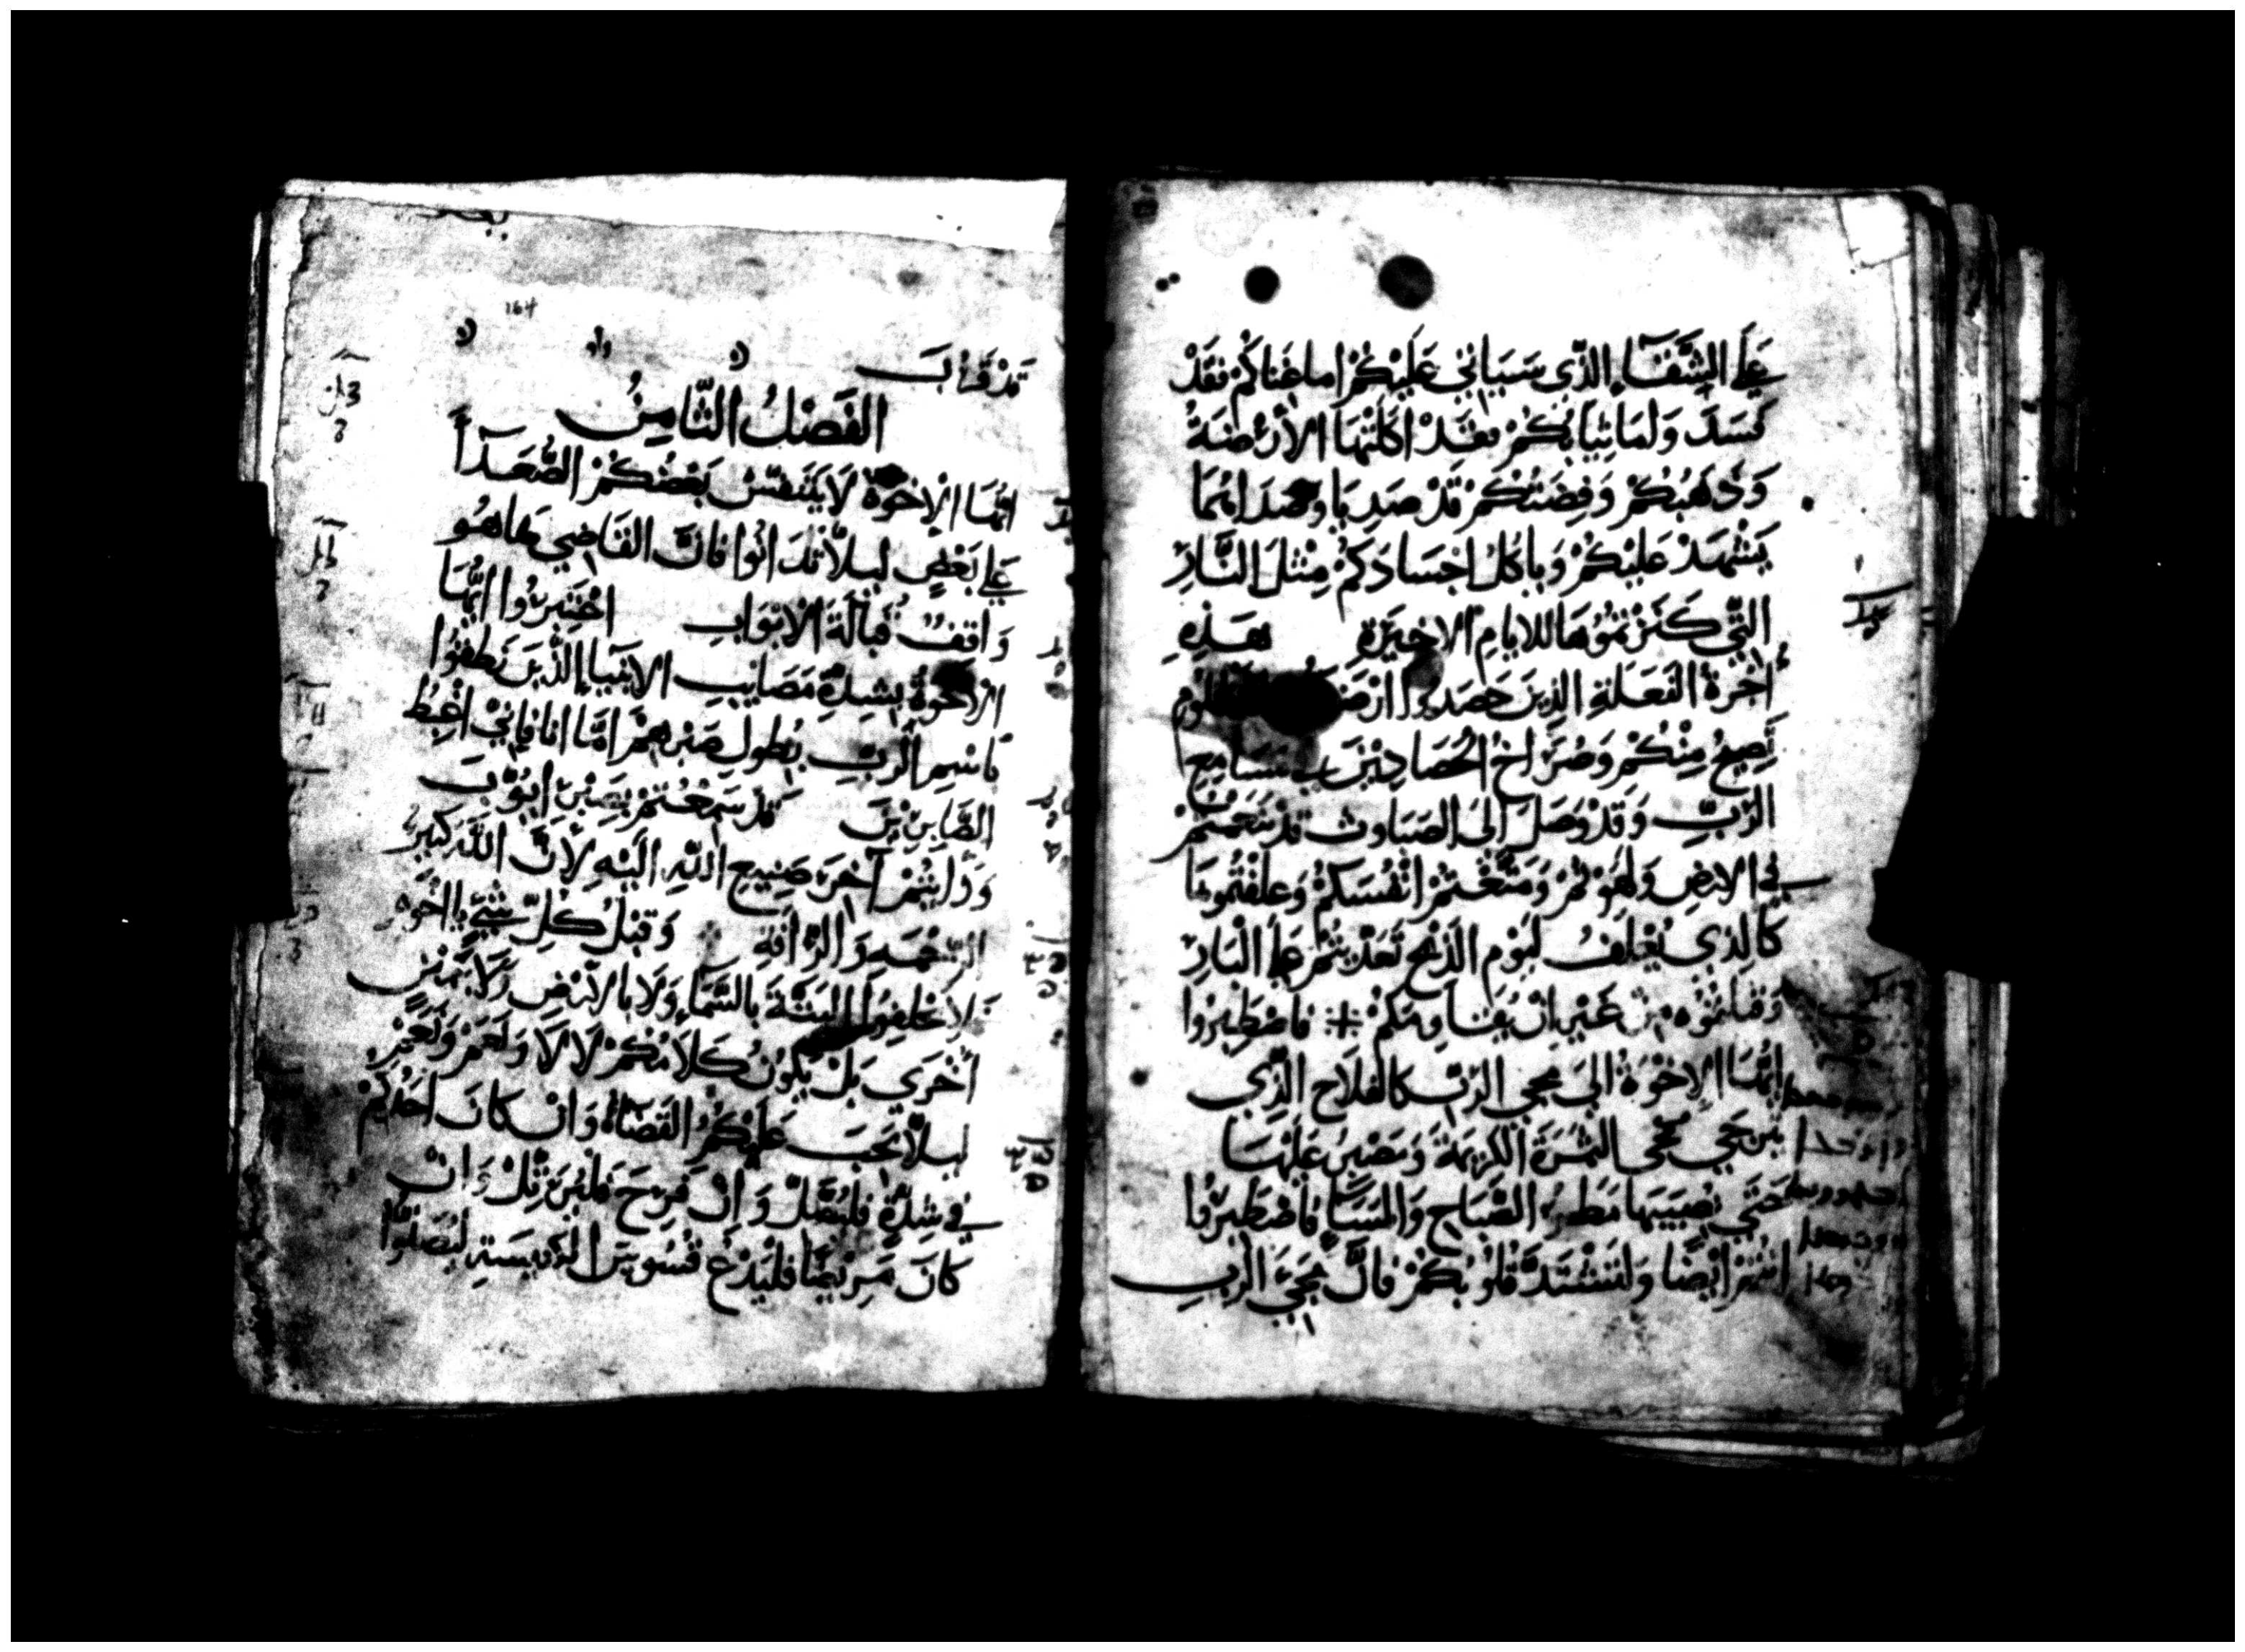 عَلَى الشَّقَآءِ الَّذِي سَيَاتِي عَلَيْكُمْ اما غناكم فَقَدْ
فسَدَ وَلمَا ثِيَابُكُمْ فقَدْ اكَلَتْهَا الأَرْضَةُ
وَذَهَبُكُمْ وَفِضَتُكُمْ قَدْ صَدِيَا وصَدَاهُمَا
يَشْهَدْ عَلَيْكُمْ وَيأكُلُ اجْسَادَكُمْ مِثْلَ النَّارِ
الَّتِي كَنَزْتمُوُهَا للايامِ الاخِيَرة هَذِهِ
أُجْرَةُ الفَعَلَةِ الذِينَ حَصَدوا ارْضَكُم
تَصِيحُ مِنْكُمْ وَصُرَاخُ الحَصَادِيْنَ بِمَسَامِعِ
الرَّبِّ وَقَدْ وَصَلَ الَى الصَبَاوت قد تنَعَمْتُمْ
فِي الارْضِ وَلهَوْتُمْ وَمَتَّعْتُمْ انْفُسَكُمْ وَعلفْتُمُوهَا
كَالذِي يُعْلَفُ لَيَوْمِ الَذبْحِ تَعَدّيْتُمْ عَلَى الْبَارِّ
وَقتلتُمُوُه مِنْ غَيْرِ انْ يُقاوِمَكُمْ ※ فاصْطَبِرُوا
ايُّهَا الاِخْوَةُ الَى مجي الرَّبِّ كالفلَاح الَّذِي
يَرتَجِي مجي الثَمَرَةَ الكَرِيمَةَ وَيَصْبِرُ عَلَيْهَا
حَتَي يُصِيبَهَا مَطَرُ الصَّبَاحِ وَالمسَآءِ فَاصْطَبِرُوا
انتُمْ ايْضًا وَلتَشْتَدَّ قُلوُبُكُمْ فَانَّ مجَيَ الرَّبِ
164
قدْ قَرُبَ
الفَصْلُ الثَّامِنُ
ايُّهَا الاِخْوَةُ لَا يَتَنفسْ بَعْضُكُمْ الصُّعَدآءَ
عَلَى بَعْضٍ ليلَّا تُدَانُوا فانَّ القَاضِي هَا هُو
وَاقِفُ قُبَالَةَ الابْوَابِ اخْتَبِرُوا ايُّهَا
الاِخْوَةُ بشِدةِ مَصَايبِ الانبِيَاءِ الَّذِيَن نَطَقُوا
بَاسْمِ الرَّبِّ بُطول صَبْرِهِمْ امَّا انا فَإِنِيْ اغْبِطُ
الصَّابِرِيْنَ قد سَمِعْتُمْ بِصَبْرِ ايُّوبَ
وَرَايتُمْ آخِرَ صَنِيعِ اللهِ الَيْهِ لأَنَّ اللهَ كَثِيرُ
الرَّحْمَه وَالرَّافَهِ وَقبْلُ كُلِّ شيْءٍ يااخْوَه
لا تحْلِفُوا البَتَّةَ بالسَّمَاءِ وَلَا بالارْضِ وَلا بَيَمْينٍ
أخْرَي بَلْ يكُونُ كَلَامُكُمْ لَا لَا وَنعَمْ وَنعَمْ
ليلَّا يجَبَ عَلَيْكُمُ القَضاءُ وَانْ كَانَ احَدُكُمْ
فِي شِدَّةٍ فليُصَلِّ وَانْ فَرِحَ فليُرَتِّلْ وَانْ
كانَ مَرِيْضًا فليَدْعُ قسُوسَ الكَنِيسَةِ ليُصَلُّوُا